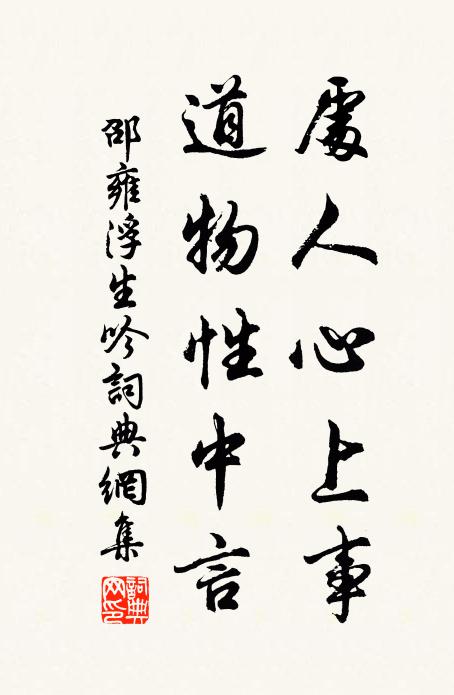 處人心上事
道物性中言
邵雍浮生吟詞典網集
詞典网印